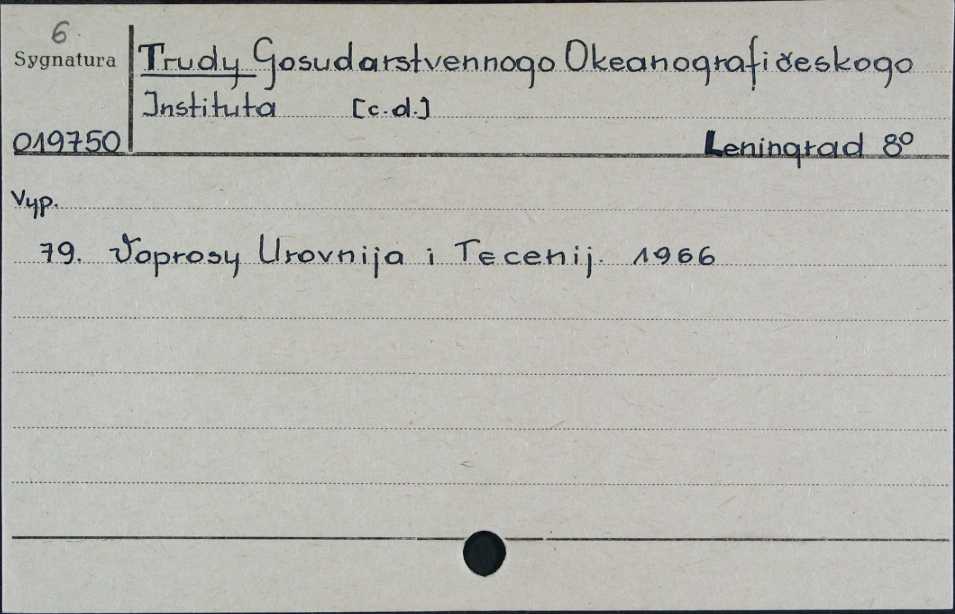 6
Sygnatura Trudy Gosudarstvennogo Okeanografičeskogo
Instituta [c.d.]
019750 Leningrad 8°
Vyp.
79. Voprosy Urovnija i Tecenij. 1966